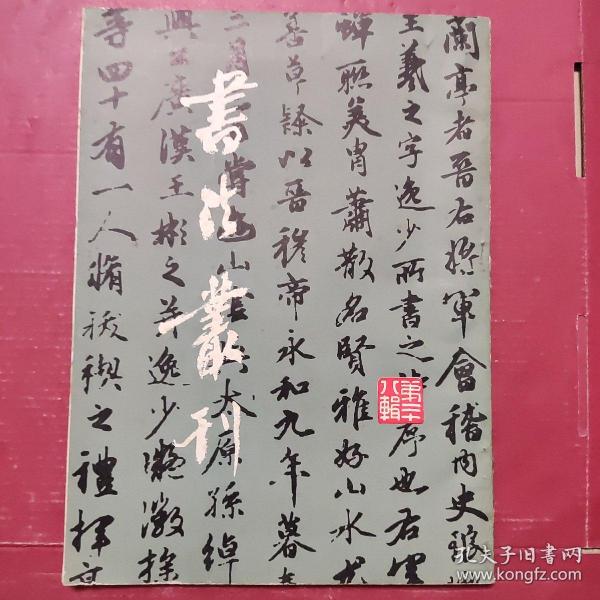 書法叢刊
第二十八輯
蘭亭者晉右将軍會稽内史瑯
王羲之字逸少所書之詩序也右軍
蟬聯美胄蕭散名賢雅好山水尤
善草隸以晉穆帝永和九年暮春
三月
興公廣漢王彬之并逸少凝徽操
等四十有一人脩祓禊之禮揮毫
山
太原孫綽
孔夫子旧书网
www.kongfz.com